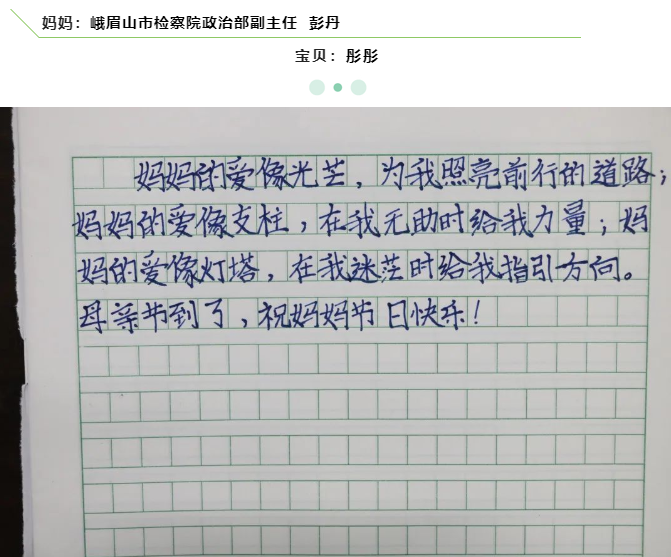 妈妈：峨眉山市检察院政治部副主任 彭丹
宝贝：彤彤
妈妈的爱像光芒，为我照亮前行的道路；
妈妈的爱像支柱，在我无助时给我力量；妈
妈的爱像灯塔，在我迷茫时给我指引方向。
母亲节到了，祝妈妈节日快乐！